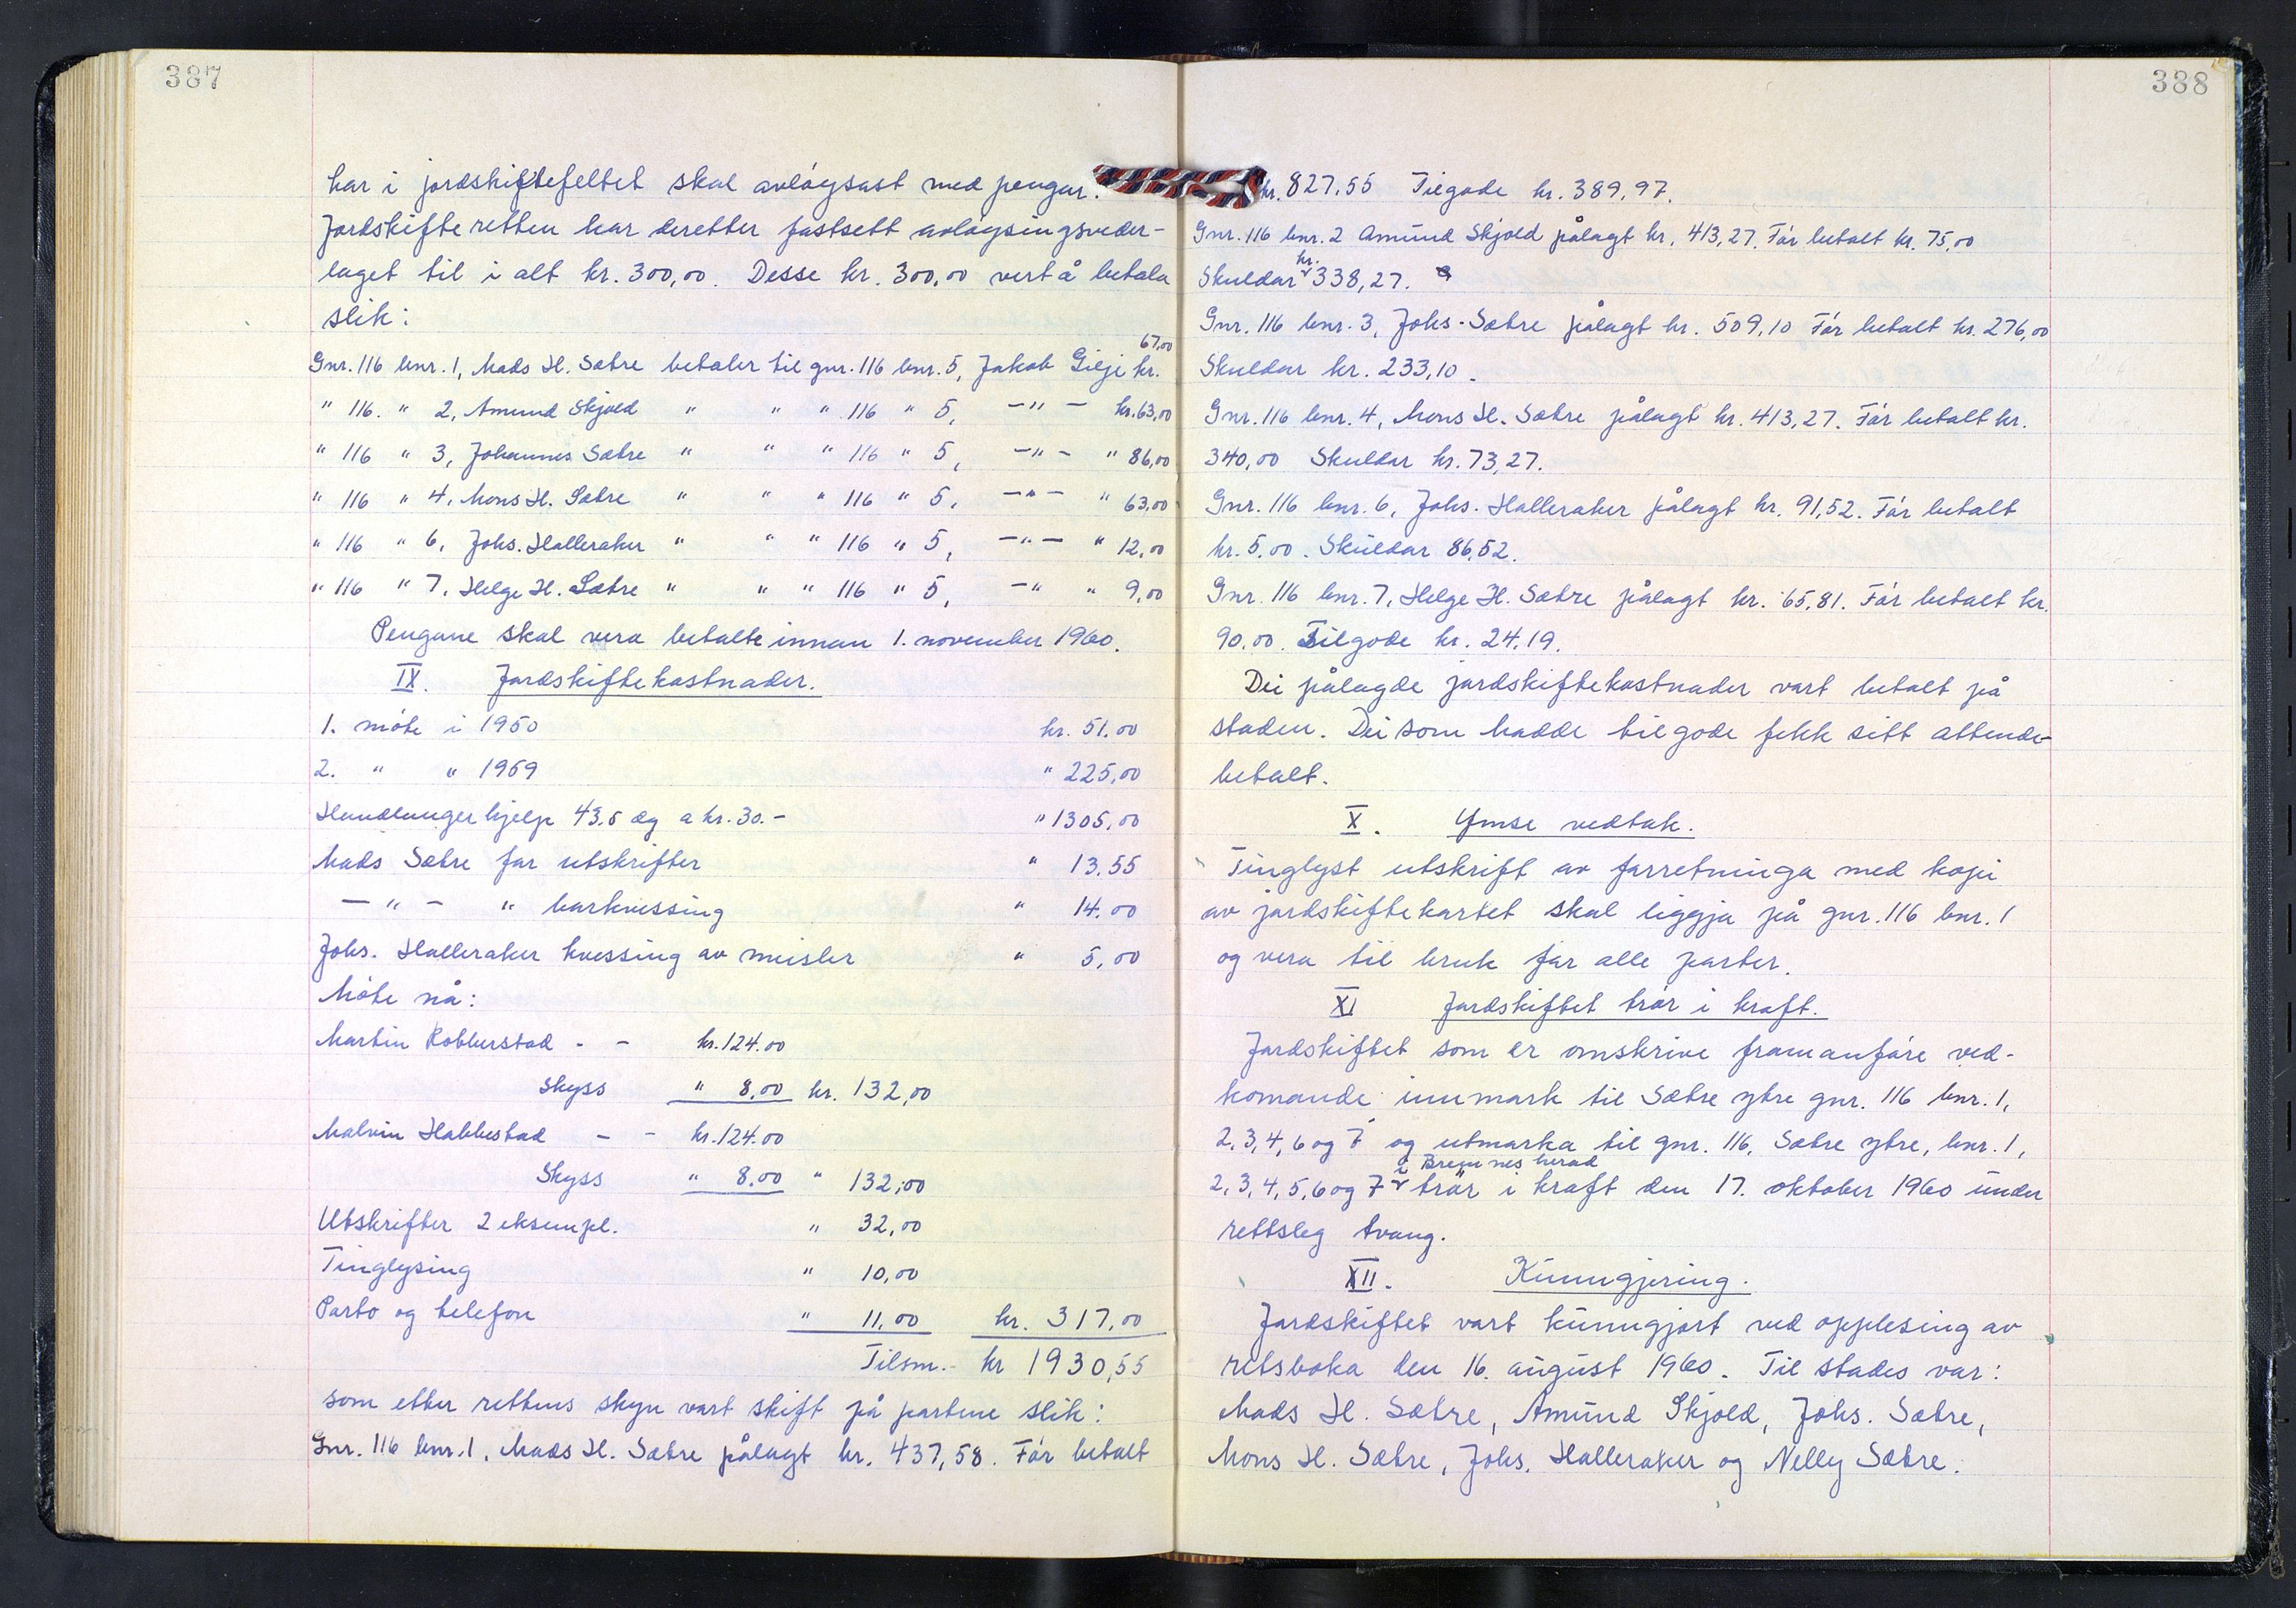 387
har i jordskiftefeltet skal avløysast med pengar.
Jordskifteretten har deretter fastsett avløysingsveder-
laget til i alt kr. 300,00. Desse kr. 300,00 vert å betala
slik:
67,00
Gnr. 116 bnr. 1, Mads H. Sætre betaler til gnr. 116 bnr. 5, Jakob Gilje kr.
" 116. " 2, Amund Skjold " " " 116 " 5, -"- kr. 63,00
" 116 " 3, Johannes Sætre " " " 116 " 5, -"- " 86,00
" 116 " 4, Mons H. Sætre " " " 116 " 5, -"- " 63,00
" 116 " 6, Johs. Halleraker " " " 116 " 5, -"- " 12,00
" 116 " 7, Helge H. Sætre " " " 116 " 5, -" " 9,00
Pengane skal vera betalte innan 1. november 1960.
IX. Jordskiftekostnader.
1. møte i 1950 kr. 51.00
2. " " 1959 " 225,00
Handlangerhjelp 43,5 dg a kr. 30.- " 1305,00
Mads Sætre for utskrifter " 13.55
-"- " borkvessing " 14.00
Johs. Halleraker kvessing av meisler " 5,00
Møte nå:
Martin Robberstad - - kr. 124.00
Skyss " 8,00 kr. 132,00
Malvin Habbestad - - kr. 124.00
Skyss " 8.00 " 132,00
Utskrifter 2 eksempl. " 32,00
Tinglysing " 10,00
Porto og telefon " 11.00 kr. 317,00
Tilsm.- kr 1930,55
som etter rettens skyn vart skift på partene slik:
Gnr. 116 bnr. 1. Mads H. Sætre pålagt kr. 437,58. Før betalt
388
kr. 827,55 Tilgode kr. 389,97.
Gnr. 116 bnr. 2 Amund Skjold pålagt kr. 413,27. Før betalt kr. 75,00
kr.
Skuldar 338,27.
Gnr. 116 bnr. 3, Johs. Sætre pålagt kr. 509,10 Før betalt kr. 276,00
Skuldar kr. 233,10.
Gnr. 116 bnr. 4, Mons H. Sætre pålagt kr. 413,27. Før betalt kr.
340,00 Skuldar kr. 73,27.
Gnr. 116 bnr. 6, Johs. Halleraker pålagt kr. 91,52. Før betalt
kr. 5,00. Skuldar 86,52.
Gnr. 116 bnr. 7, Helge H. Sætre pålagt kr. 65,81. Før betalt kr.
90.00. Tilgode kr. 24.19.
Dei pålagde jordskiftekostnader vart betalt på
staden. Dei som hadde tilgode fekk sitt attende-
betalt.
X. Ymse vedtak.
Tinglyst utskrift av forretninga med kopi
av jordskiftekartet skal liggja på gnr. 116 bnr. 1
og vera til bruk for alle parter.
XI Jordskiftet trør i kraft.
Jordskiftet som er omskrive framanføre ved-
komande innmark til Sætre ytre gnr. 116 bnr. 1,
2, 3, 4, 6 og 7 og utmarka til gnr. 116, Sætre ytre, bnr. 1,
i Bremnes herad
2, 3, 4, 5, 6 og 7 trør i kraft den 17. oktober 1960 under
rettsleg tvang.
XII. Kunngjering.
Jordskiftet vart kunngjort ved opplesing av
retsboka den 16. august 1960. Til stades var:
Mads H. Sætre, Amund Skjold, Johs. Sætre,
Mons H. Sætre, Johs. Halleraker og Nelly Sætre.